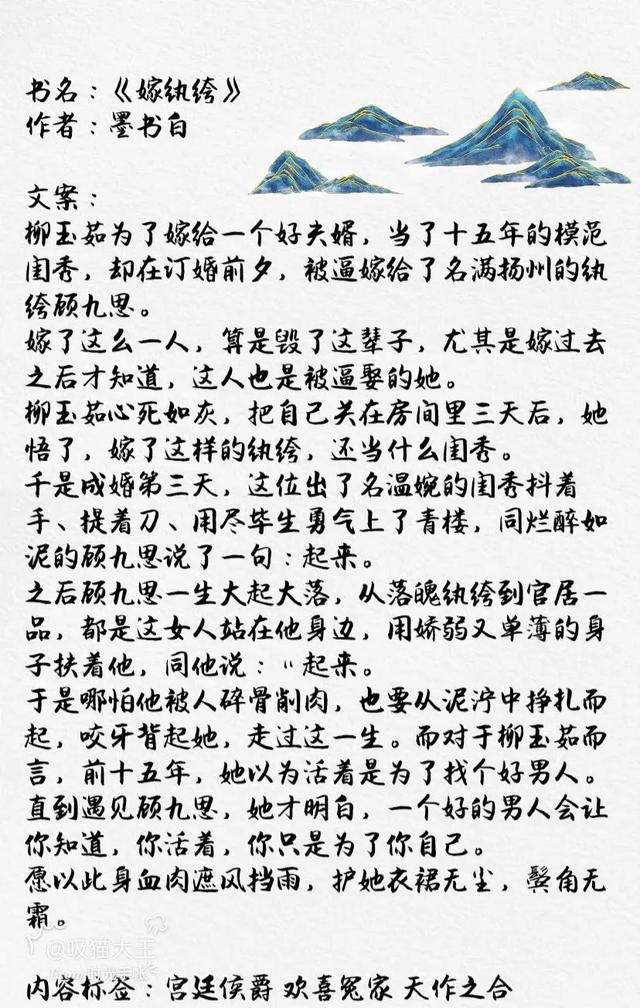 书名：《嫁纨绔》
作者：墨书白
文案：
柳玉茹为了嫁给一个好夫婿，当了十五年的模范
闺秀，却在订婚前夕，被逼嫁给了名满扬州的纨
绔顾九思。
嫁了这么一人，算是毁了这辈子，尤其是嫁过去
之后才知道，这人也是被逼娶的她。
柳玉茹心死如灰，把自己关在房间里三天后，她
悟了，嫁了这样的纨绔，还当什么闺秀。
于是成婚第三天，这位出了名温婉的闺秀抖着
手、提着刀、用尽毕生勇气上了青楼，同烂醉如
泥的顾九思说了一句：起来。
之后顾九思一生大起大落，从落魄纨绔到官居一
品，都是这女人站在他身边，用娇弱又单薄的身
子扶着他，同他说："起来。
于是哪怕他被人碎骨削肉，也要从泥泞中挣扎而
起，咬牙背起她，走过这一生。而对于柳玉茹而
言，前十五年，她以为活着是为了找个好男人。
直到遇见顾九思，她才明白，一个好的男人会让
你知道，你活着，你只是为了你自己。
愿以此身血肉遮风挡雨，护她衣裙无尘，鬓角无
霜。
@吸猫大王
内容标签：宫廷侯爵 欢喜冤家 天作之合